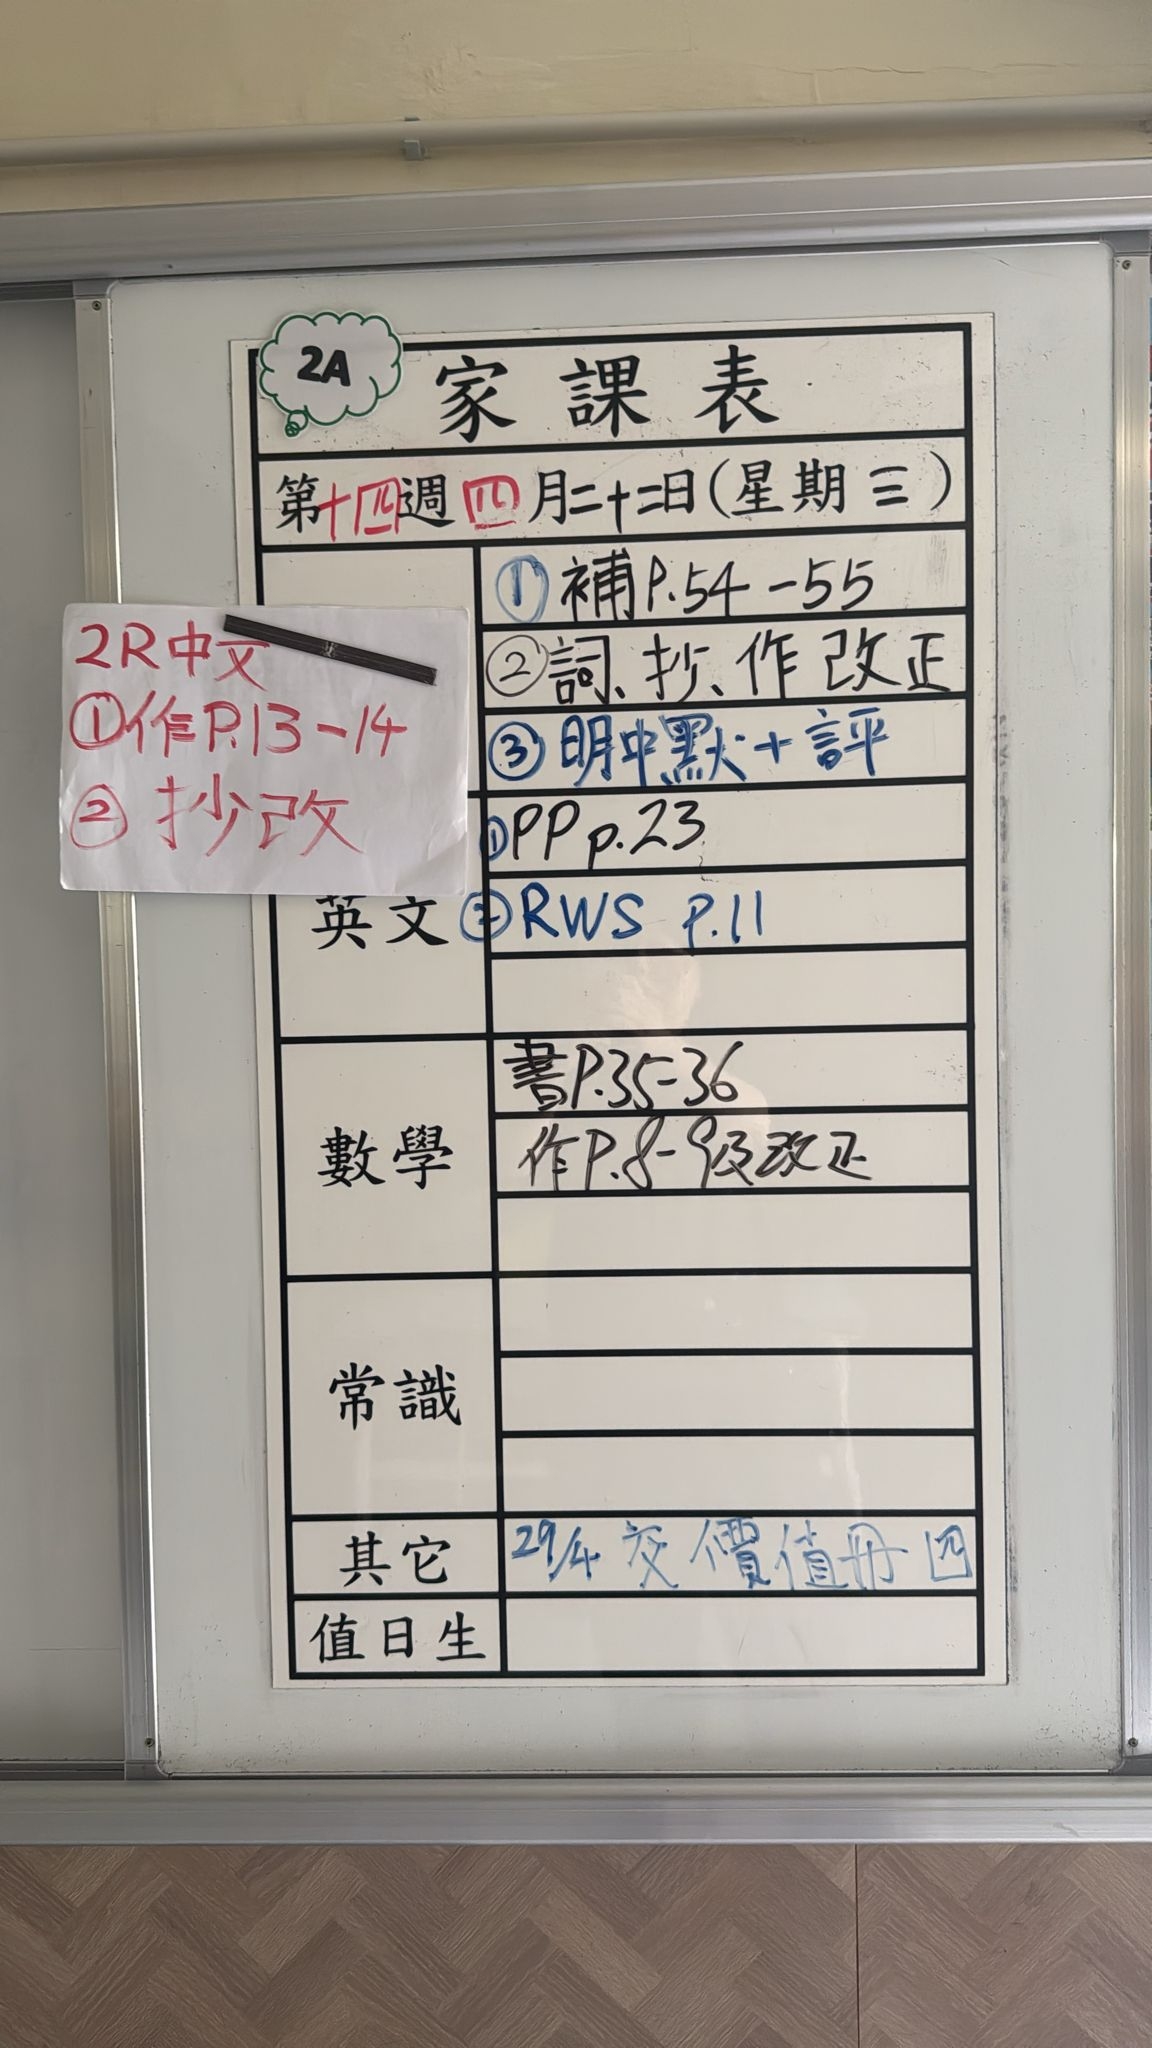 2A
家課表
第十四週四月二十二日(星期三)
2R中文
①作P.13-14
②抄改
①補P.54-55
②詞、抄、作改正
③明中默+評
英文
①PP p.23
②RWS P.11
數學
書P.35-36
作P.8-9及改正
常識
其它
29/4 交價值冊四
值日生